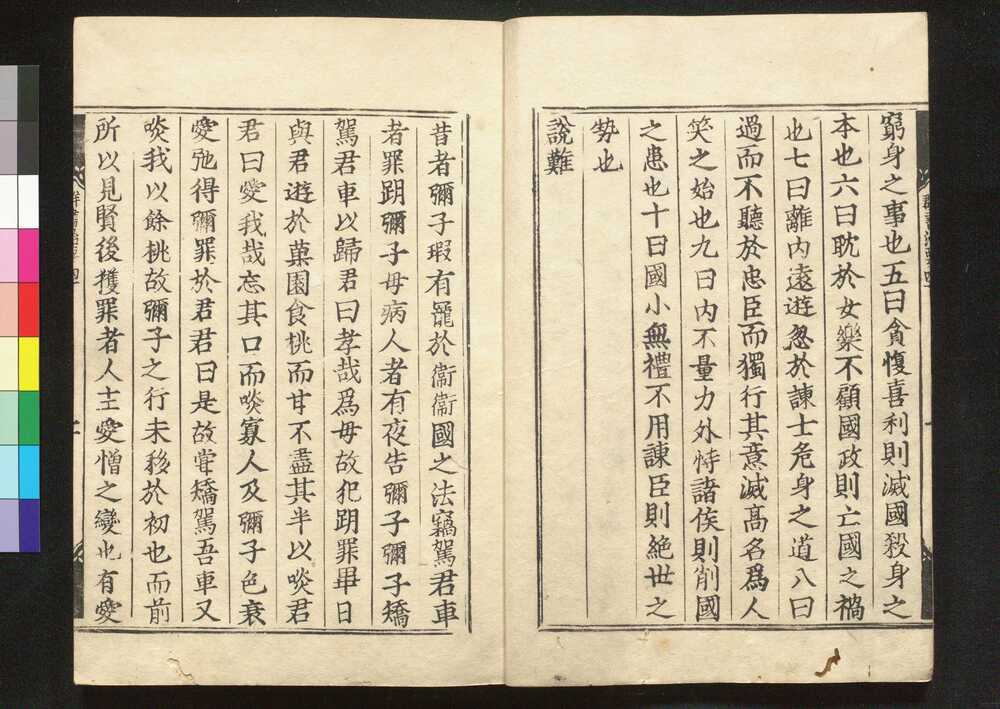 窮身之事也五曰貪愎喜利則滅國殺身之
本也六曰耽於女樂不顧國政則亡國之禍
也七曰離內遠遊忽於諫士危身之道八曰
過而不聽於忠臣而獨行其意滅高名爲人
笑之始也九曰內不量力外恃諸侯則削國
之患也十曰國小無禮不用諫臣則絕世之
勢也
說難
昔者彌子瑕有寵於衞衞國之法竊駕君車
者罪刖彌子母病人者有夜告彌子彌子矯
駕君車以歸君曰孝哉爲母故犯刖罪異日
與君遊於菓園食桃而甘不盡其半以啖君
君曰愛我哉忘其口而啖寡人及彌子色衰
愛弛得彌罪於君君曰是故嘗矯駕吾車又
啖我以餘桃故彌子之行未移於初也而前
所以見賢後獲罪者人主愛憎之變也有愛